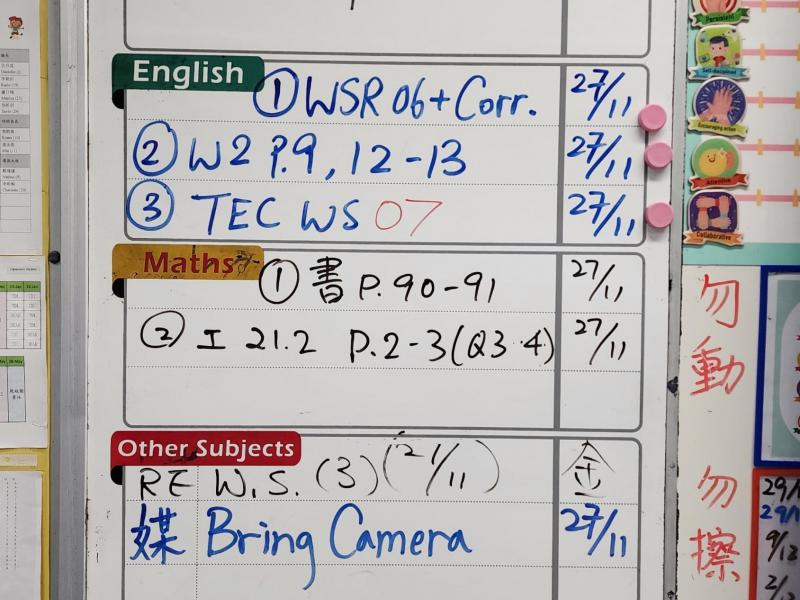 English
① WSR 06 + Corr. 27/11
② W2 P.9, 12-13 27/11
③ TEC WS 07 27/11
Maths
① 書 P.90-91 27/11
② 工 21.2 P.2-3 (Q3.4) 27/11
Other Subjects
RE W.S. (3) (21/11) 金
媒 Bring Camera 27/11
Persistent
Self-disciplined
Encouraging action
Attentive
Collaborative
勿動
勿擦
29/1
29/1
9/12
2/